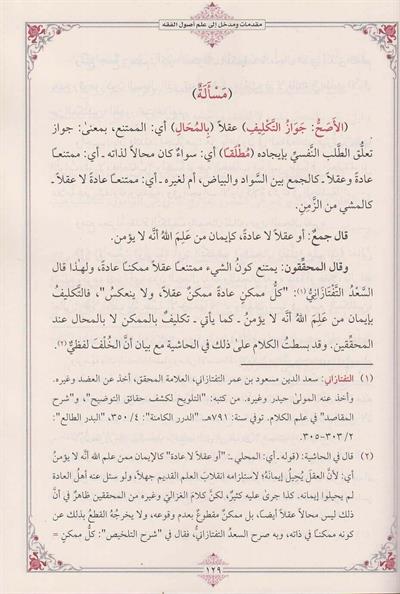 مقدمات ومدخل إلى علم أصول الفقه
(مَسْأَلَةٌ)
(الأَصَحُّ: جَوَازُ التَّكْلِيفِ) عقلاً (بِالمُحَالِ) أي: الممتنع، بمعنىٰ: جواز
تعلُّق الطَّلب النَّفسيِّ بإيجاده (مُطْلَقاً) أي: سواءٌ كان محالاً لذاته ـ أي: ممتنعاً
عادةً وعقلاً ـ كالجمع بين السَّواد والبياض، أم لغيره ـ أي: ممتنعاً عادةً لا عقلاً ـ
كالمشي من الزَّمِنِ.
قال جمعٌ: أو عقلاً لا عادةً، كإيمان من عَلِمَ اللهُ أنَّه لا يؤمن.
وقال المحقِّقون: يمتنع كونُ الشيء ممتنعاً عقلاً ممكناً عادةً، ولهٰذا قال
السَّعْدُ التَّفْتَازَانِيُّ(١): "كلُّ ممكنٍ عادةً ممكنٌ عقلاً، ولا ينعكسُ"، فالتَّكليفُ
بإيمان من عَلِمَ اللهُ أنَّه لا يؤمنُ ـ كما يأتي ـ تكليفٌ بالممكن لا بالمحال عند
المحقِّقين. وقد بسطتُ الكلام علىٰ ذلك في الحاشية مع بيان أنَّ الخُلْفَ لفظيٌّ(٢).
(١) التفتازاني: سعد الدين مسعود بن عمر التفتازاني، العلامة المحقق، أخذ عن العضد وغيره.
وأخذ عنه المولىٰ حيدر وغيره. من كتبه: "التلويح لكشف حقائق التوضيح"، و"شرح
المقاصد" في علم الكلام. توفي سنة: ٧٩١هـ. "الدرر الكامنة": ٤/ ٣٥٠، "البدر الطالع":
٢/ ٣٠٣-٣٠٥.
(٢) قال في الحاشية: (قوله ـ أي: المحلي ـ: "أو عقلاً لا عادة" كالإيمان ممن علم الله أنه لا يؤمن
أي: لأنَّ العقلَ يُحِيلُ إيمانَهُ؛ لاستلزامه انقلابَ العلم القديم جهلاً، ولو سئل عنه أهلُ العادة
لم يحيلوا إيمانه. كذا جرىٰ عليه كثيرٌ، لكنَّ كلامَ الغزاليِّ وغيره من المحققين ظاهرٌ في أنَّ
ذلك ليس محالاً عقلاً أيضاً، بل ممكنٌ مقطوعٌ بعدم وقوعه، ولا يخرجُهُ القطعُ بذلك عن
كونه ممكناً في ذاته، وبه صرح السعدُ التفتازانيُّ، فقال في "شرح التلخيص": كلُّ ممكنٍ =
١٢٩